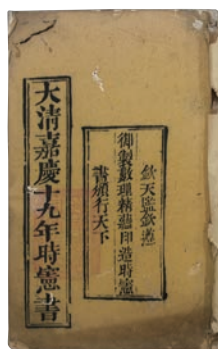 欽天監欽遵
御製數理精蘊印造時憲
書頒行天下
大清嘉慶十九年時憲書